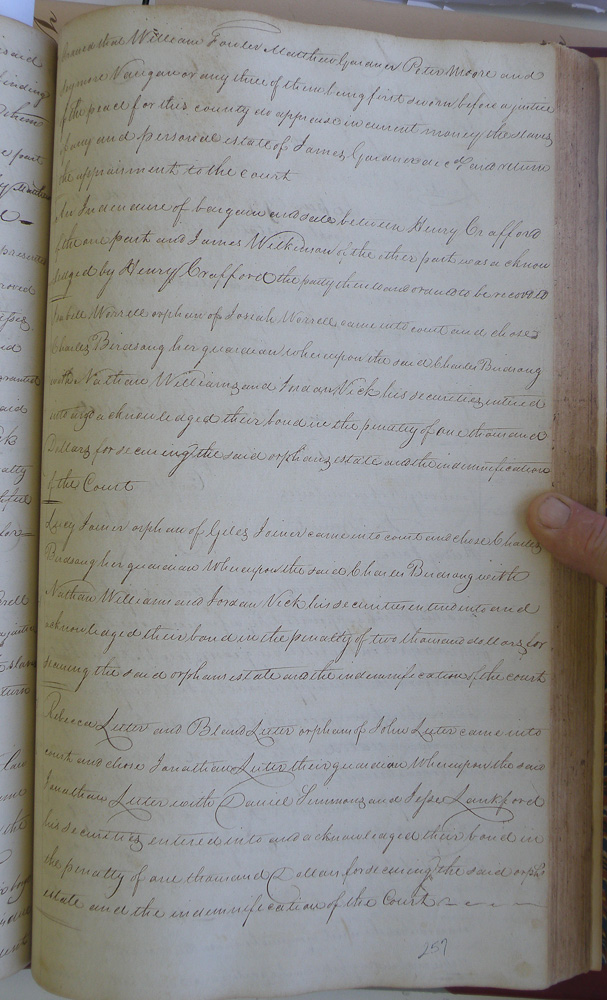 said
William Fowler Matthew Gardner Peter Moore and
Vaugan or any three of them being first sworn before a justice
of the peace for this county do appraise in current money the slaves
if any and personal estate of James Gardner dec.d and return
the appraisment to the court
An Indenture of bargain and sale between Henry Crafford
of the one part and James Wilkinson of the other part was acknow
ledged by Henry Crafford the party thereto and ordered to be recorded
Worrell orphan of Josiah Worrell came into court and chose
Charles Birdsong her guardian whereupon the said Charles Birdsong
with Nathan Williams and Jordan Vick his securities entered
into and acknowledged their bond in the penalty of one thousand
Dollars for securing the said orphans estate and the indemnification
of the Court
Lucy Joiner orphan of Giles Joiner came into court and chose Charles
Birdsong her guardian Whereupon the said Charles Birdsong with
Nathan Williams and Jordan Vick his securities entered into and
acknowledged their bond in the penalty of two thousand dollars for
securing the said orphans estate and the indemnification of the court
Rebecca Luter and Bland Luter orphans of John Luter came into
court and chose Jonathan Luter their guardian Whereupon the said
Jonathan Luter with Daniel Simmons and Jesse Lankford
his securities entered into and acknowledged their bond in
the penalty of one thousand Dollars for securing the said orphs
estate and the indemnification of the Court
257